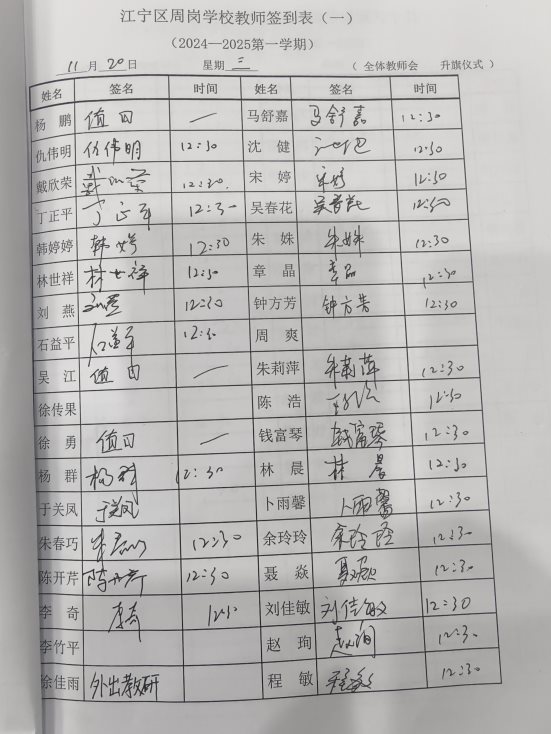 江宁区周岗学校教师签到表（一）
（2024—2025第一学期）
11月20日 星期三 （ 全体教师会 升旗仪式 ）
姓名 签名 时间 姓名 签名 时间
杨 鹏 值日 — 马舒嘉 马舒嘉 12:30
仇伟明 仇伟明 12:30 沈 健 12:30
戴欣荣 戴欣荣 12:30. 宋 婷 宋婷 12:30
丁正平 丁正平 12:30 吴春花 吴春花 12:30
韩婷婷 韩婷 12:30 朱 姝 朱姝 12:30
林世祥 林世祥 12:30 章 晶 章晶 12:30
刘 燕 12:30 钟方芳 钟方芳 12:30
石益平 石益平 12:30 周 爽
吴 江 值日 — 朱莉萍 朱莉萍 12:30
徐传果 陈 浩 12:30
徐 勇 值日 — 钱富琴 钱富琴 12:30
杨 群 杨群 12:30 林 晨 林晨 12:30
于关凤 于关凤 卜雨馨 卜雨馨 12:30
朱春巧 12:30 余玲玲 余玲玲 12:30
陈开芹 陈开芹 12:30 聂 焱 12:30
李 奇 李奇 12:30 刘佳敏 刘佳敏 12:30
李竹平 赵 珣 赵珣 12:30
徐佳雨 外出教研 程 敏 程敏 12:30